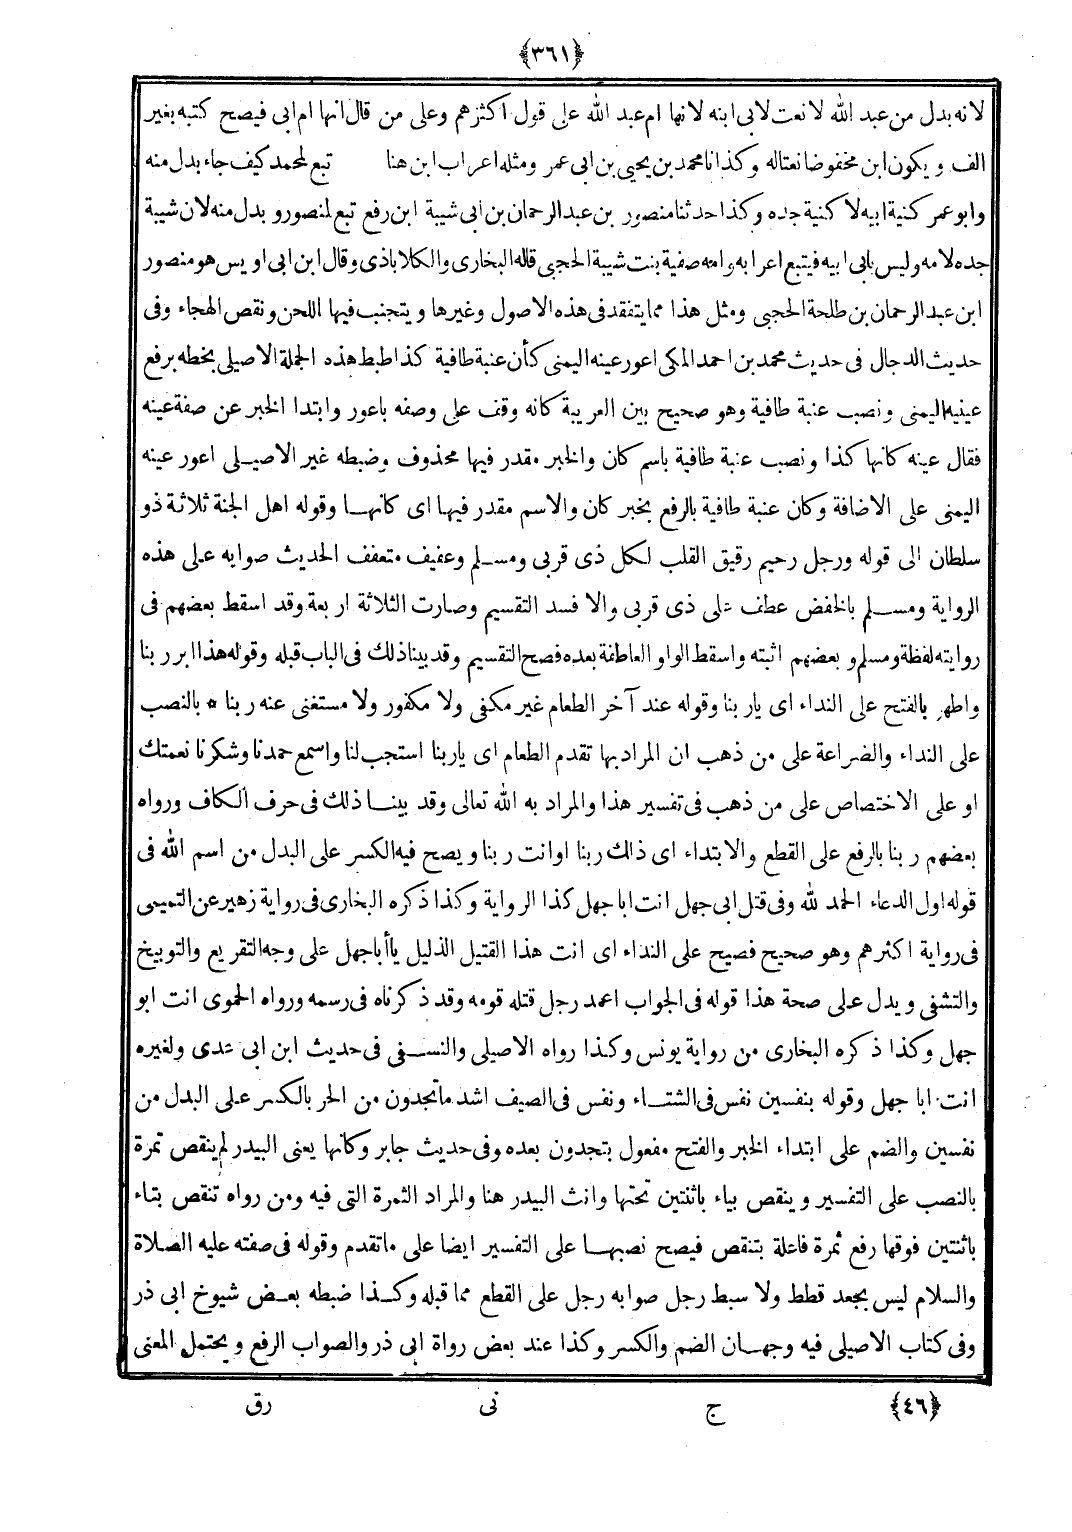 ﴿٣٦١﴾
لانه بدل من عبد الله لا نعت لابى ابنه لانها ام عبد الله على قول اكثرهم وعلى من قال انها ام ابى فيصح كتبه بغير
الف ويكون ابن مخفوضا نعتاله وكذا نا محمد بن يحيى بن ابى عمر ومثله اعراب ابن هنا تبع لمحمد كيف جاء بدل منه
وابو عمر كنية ابيه لا كنية جده وكذا حدثنا منصور بن عبد الرحمان بن ابى شيبة ابن رفع تبع لمنصور و بدل منه لان شيبة
جده لامه وليس بابى ابيه فيتبع اعرابه وامه صفية بنت شيبة الحجبى قاله البخارى والكلاباذى وقال ابن ابى اويس هو منصور
ابن عبد الرحمان بن طلحة الحجبى ومثل هذا مما يتفقد فى هذه الاصول وغيرها ويتجنب فيها اللحن ونقص الهجاء وفى
حديث الدجال فى حديث محمد بن احمد المكى اعور عينه اليمنى كأن عنبة طافية كذا ظبط هذه الجملة الاصيلى بخطه برفع
عينيه اليمنى ونصب عنبة طافية وهو صحيح بين العربية كانه وقف على وصفه باعور وابتدا الخبر عن صفة عينه
فقال عينه كانها كذا ونصب عنبة طافية باسم كان والخبر مقدر فيها محذوف وضبطه غير الاصيلى اعور عينه
اليمنى على الاضافة وكان عنبة طافية بالرفع بخبر كان والاسم مقدر فيها اى كانها وقوله اهل الجنة ثلاثة ذو
سلطان الى قوله ورجل رحيم رقيق القلب لكل ذى قربى ومسلم وعفيف متعفف الحديث صوابه على هذه
الرواية ومسلم بالخفض عطف على ذى قربى والا فسد التقسيم وصارت الثلاثة اربعة وقد اسقط بعضهم فى
روايته لفظة ومسلم و بعضهم اثبته واسقط الواو العاطفة بعده فصح التقسيم وقد بينا ذلك فى الباب قبله وقوله هذا ابر ربنا
واطهر بالفتح على النداء اى ياربنا وقوله عند آخر الطعام غير مكفى ولا مكفور ولا مستغنى عنه ربنا * بالنصب
على النداء والضراعة على من ذهب ان المراد بها تقدم الطعام اى ياربنا استجب لنا واسمع حمدنا وشكرنا نعمتك
او على الاختصاص على من ذهب فى تفسير هذا والمراد به الله تعالى وقد بينا ذلك فى حرف الكاف ورواه
بعضهم ربنا بالرفع على القطع والابتداء اى ذاك ربنا او انت ربنا ويصح فيه الكسر على البدل من اسم الله فى
قوله اول الدعاء الحمد لله وفى قتل ابى جهل انت ابا جهل كذا الرواية وكذا ذكره البخارى فى رواية زهير عن التميمى
فى رواية اكثرهم وهو صحيح فصيح على النداء اى انت هذا القتيل الذليل يا أبا جهل على وجه التقريع والتوبيخ
والتشفى ويدل على صحة هذا قوله فى الجواب اعمد رجل قتله قومه وقد ذكرناه فى رسمه ورواه الحموى انت ابو
جهل وكذا ذكره البخارى من رواية يونس وكذا رواه الاصيلى والنسفى فى حديث ابن ابى عدى ولغيره
انت ابا جهل وقوله بنفسين نفس فى الشتاء ونفس فى الصيف اشد ما تجدون من الحر بالكسر على البدل من
نفسين والضم على ابتداء الخبر والفتح مفعول بتجدون بعده وفى حديث جابر وكانها يعنى البيدر لم ينقص تمرة
بالنصب على التفسير وينقص بياء باثنتين تحتها وانث البيدر هنا والمراد الثمرة التى فيه ومن رواه تنقص بتاء
باثنتين فوقها رفع ثمرة فاعلة بتنقص فيصح نصبها على التفسير ايضا على ما تقدم وقوله فى صفته عليه الصلاة
والسلام ليس بجعد قطط ولا سبط رجل صوابه رجل على القطع مما قبله وكذا ضبطه بعض شيوخ ابى ذر
وفى كتاب الاصيلى فيه وجهان الضم والكسر وكذا عند بعض رواة ابى ذر والصواب الرفع ويحتمل المعنى
﴿٤٦﴾ ج نى رق